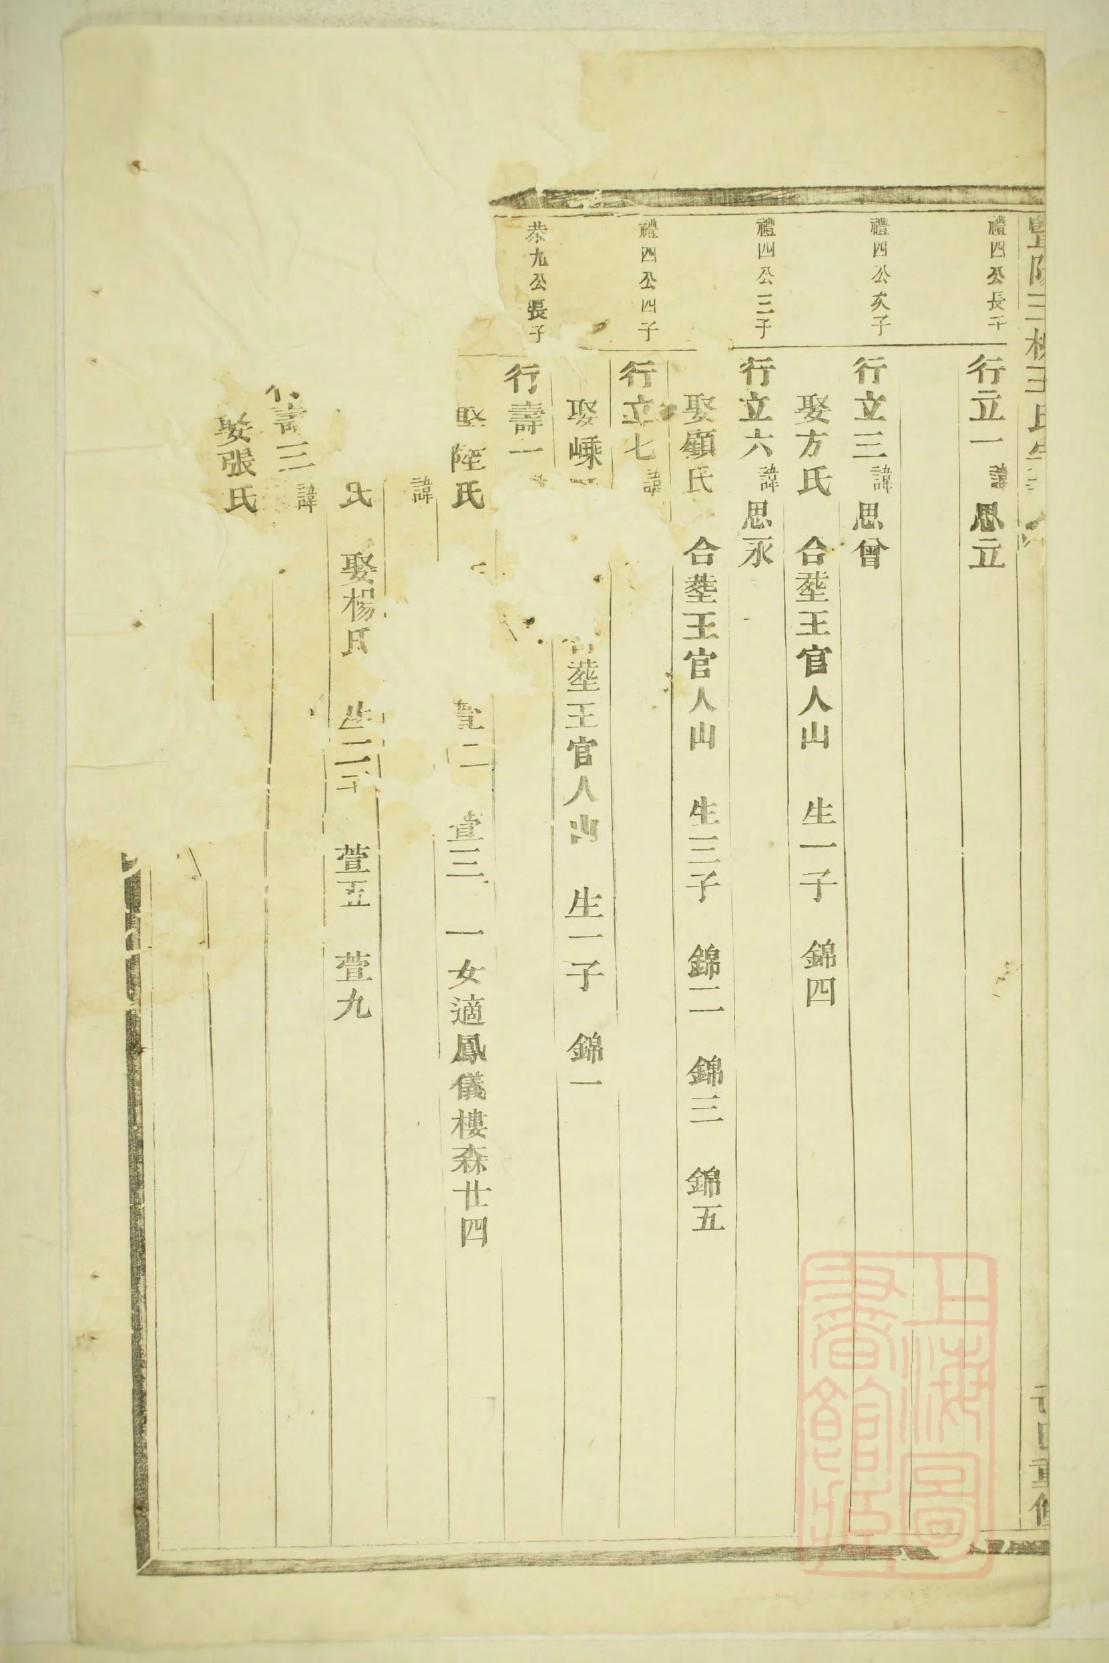 暨陽三槐王氏宗
重修
禮四公長子
行立一 諱思立
禮四公次子
行立三 諱思曾
娶方氏 合塟王官人山 生一子 錦四
禮四公三子
行立六 諱思永
娶顧氏 合塟王官人山 生三子 錦二 錦三 錦五
禮四公四子
行立七 諱
娶嵊 塟王官人山 生一子 錦一
恭九公長子
行壽一
娶陸氏 萱二 萱三 一女適鳳儀樓森廿四
諱
氏 娶楊氏 生二子 萱五 萱九
行壽三 諱
娶張氏
上海圖書館藏